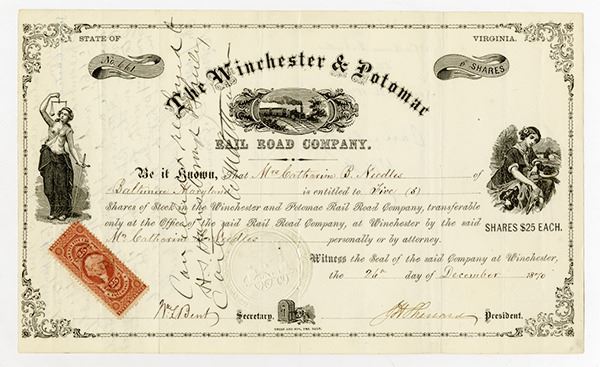 STATE OF
VIRGINIA.
No. 661
5 SHARES
The Winchester & Potomac
RAIL ROAD COMPANY.
Be it Known, That Mrs Catharine B. Needles of
Baltimore Maryland is entitled to Five (5)
Shares of Stock in the Winchester and Potomac Rail Road Company, transferable
only at the Office of the said Rail Road Company, at Winchester by the said
Mrs Catharine B. Needles personally or by attorney.
SHARES $25 EACH.
Witness the Seal of the said Company at Winchester,
the 26th day of December 1870
Wm L Bent Secretary. President.